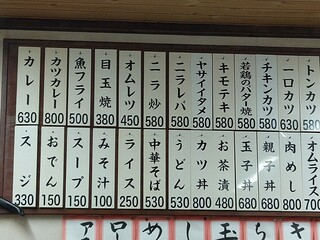 トンカツ
一口カツ 580
チキンカツ 580
若鶏のバター焼 580
キモテキ 580
ヤサイイタメ 580
ニラレバ 580
ニラ炒 580
オムレツ 450
目玉焼 380
魚フライ 500
カツカレー 800
カレー 630
オムライス 700
肉めし 800
親子丼 680
玉子丼 680
お茶漬 480
カツ丼 800
うどん 530
中華そば 530
ライス 150
みそ汁 100
スープ 150
おでん 150
スジ 330